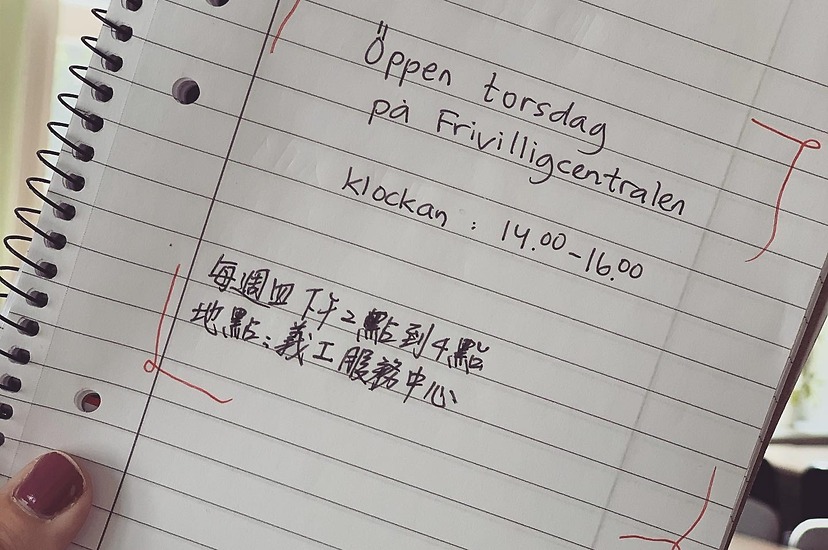 Öppen torsdag
på Frivilligcentralen
klockan : 14.00-16.00
每週四 下午2點到4點
地點:義工服務中心